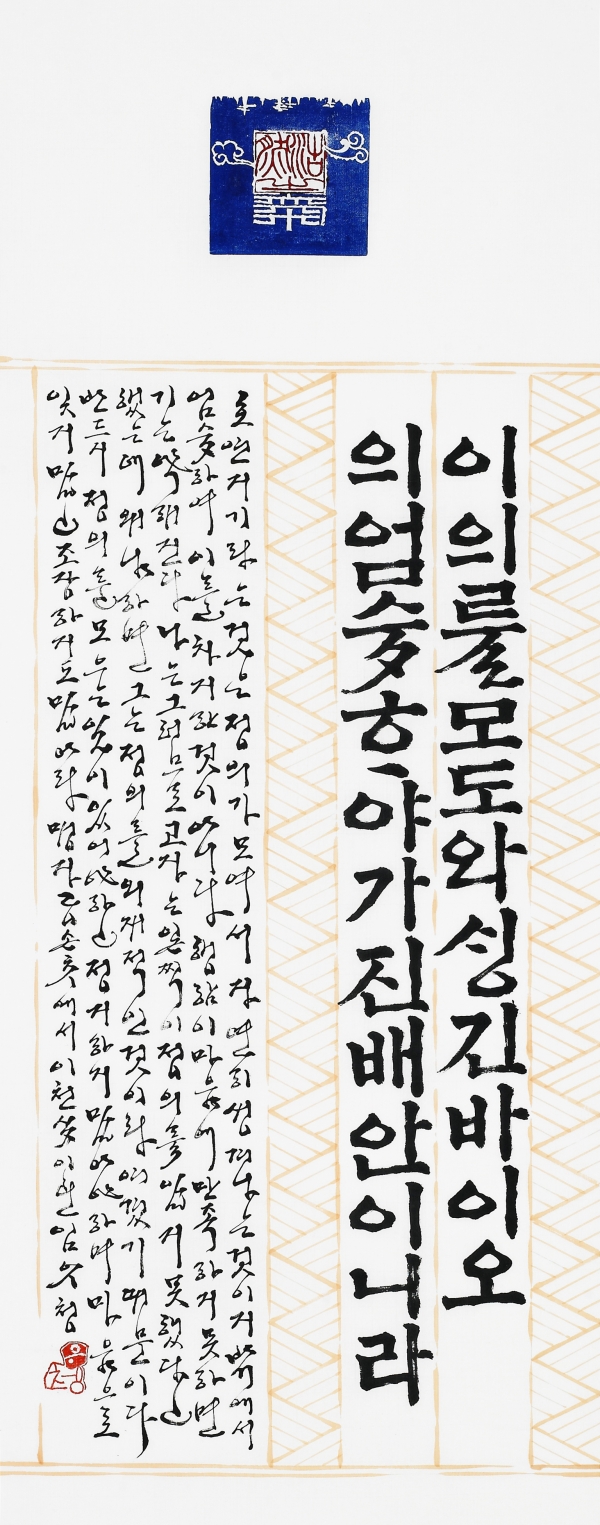 이의를모도와싱긴바이오
의엄습ᄒᆞ야가진배안이니라
호연지기라는것은정의가모여서자연히생겨나는것이지밖에서
엄습하여이를차지한것이아니다행함이마음에만족하지못하면
기는 나는그러므로고자는일찍이정의를알지못했다고
했는데왜냐하면그는정의를외재적인것이라여겼기때문이다
반드시정의를모으는일이있어야하고정지하지말아야하며마음으로
잊지말고조장하지도말아라맹자공손추에서